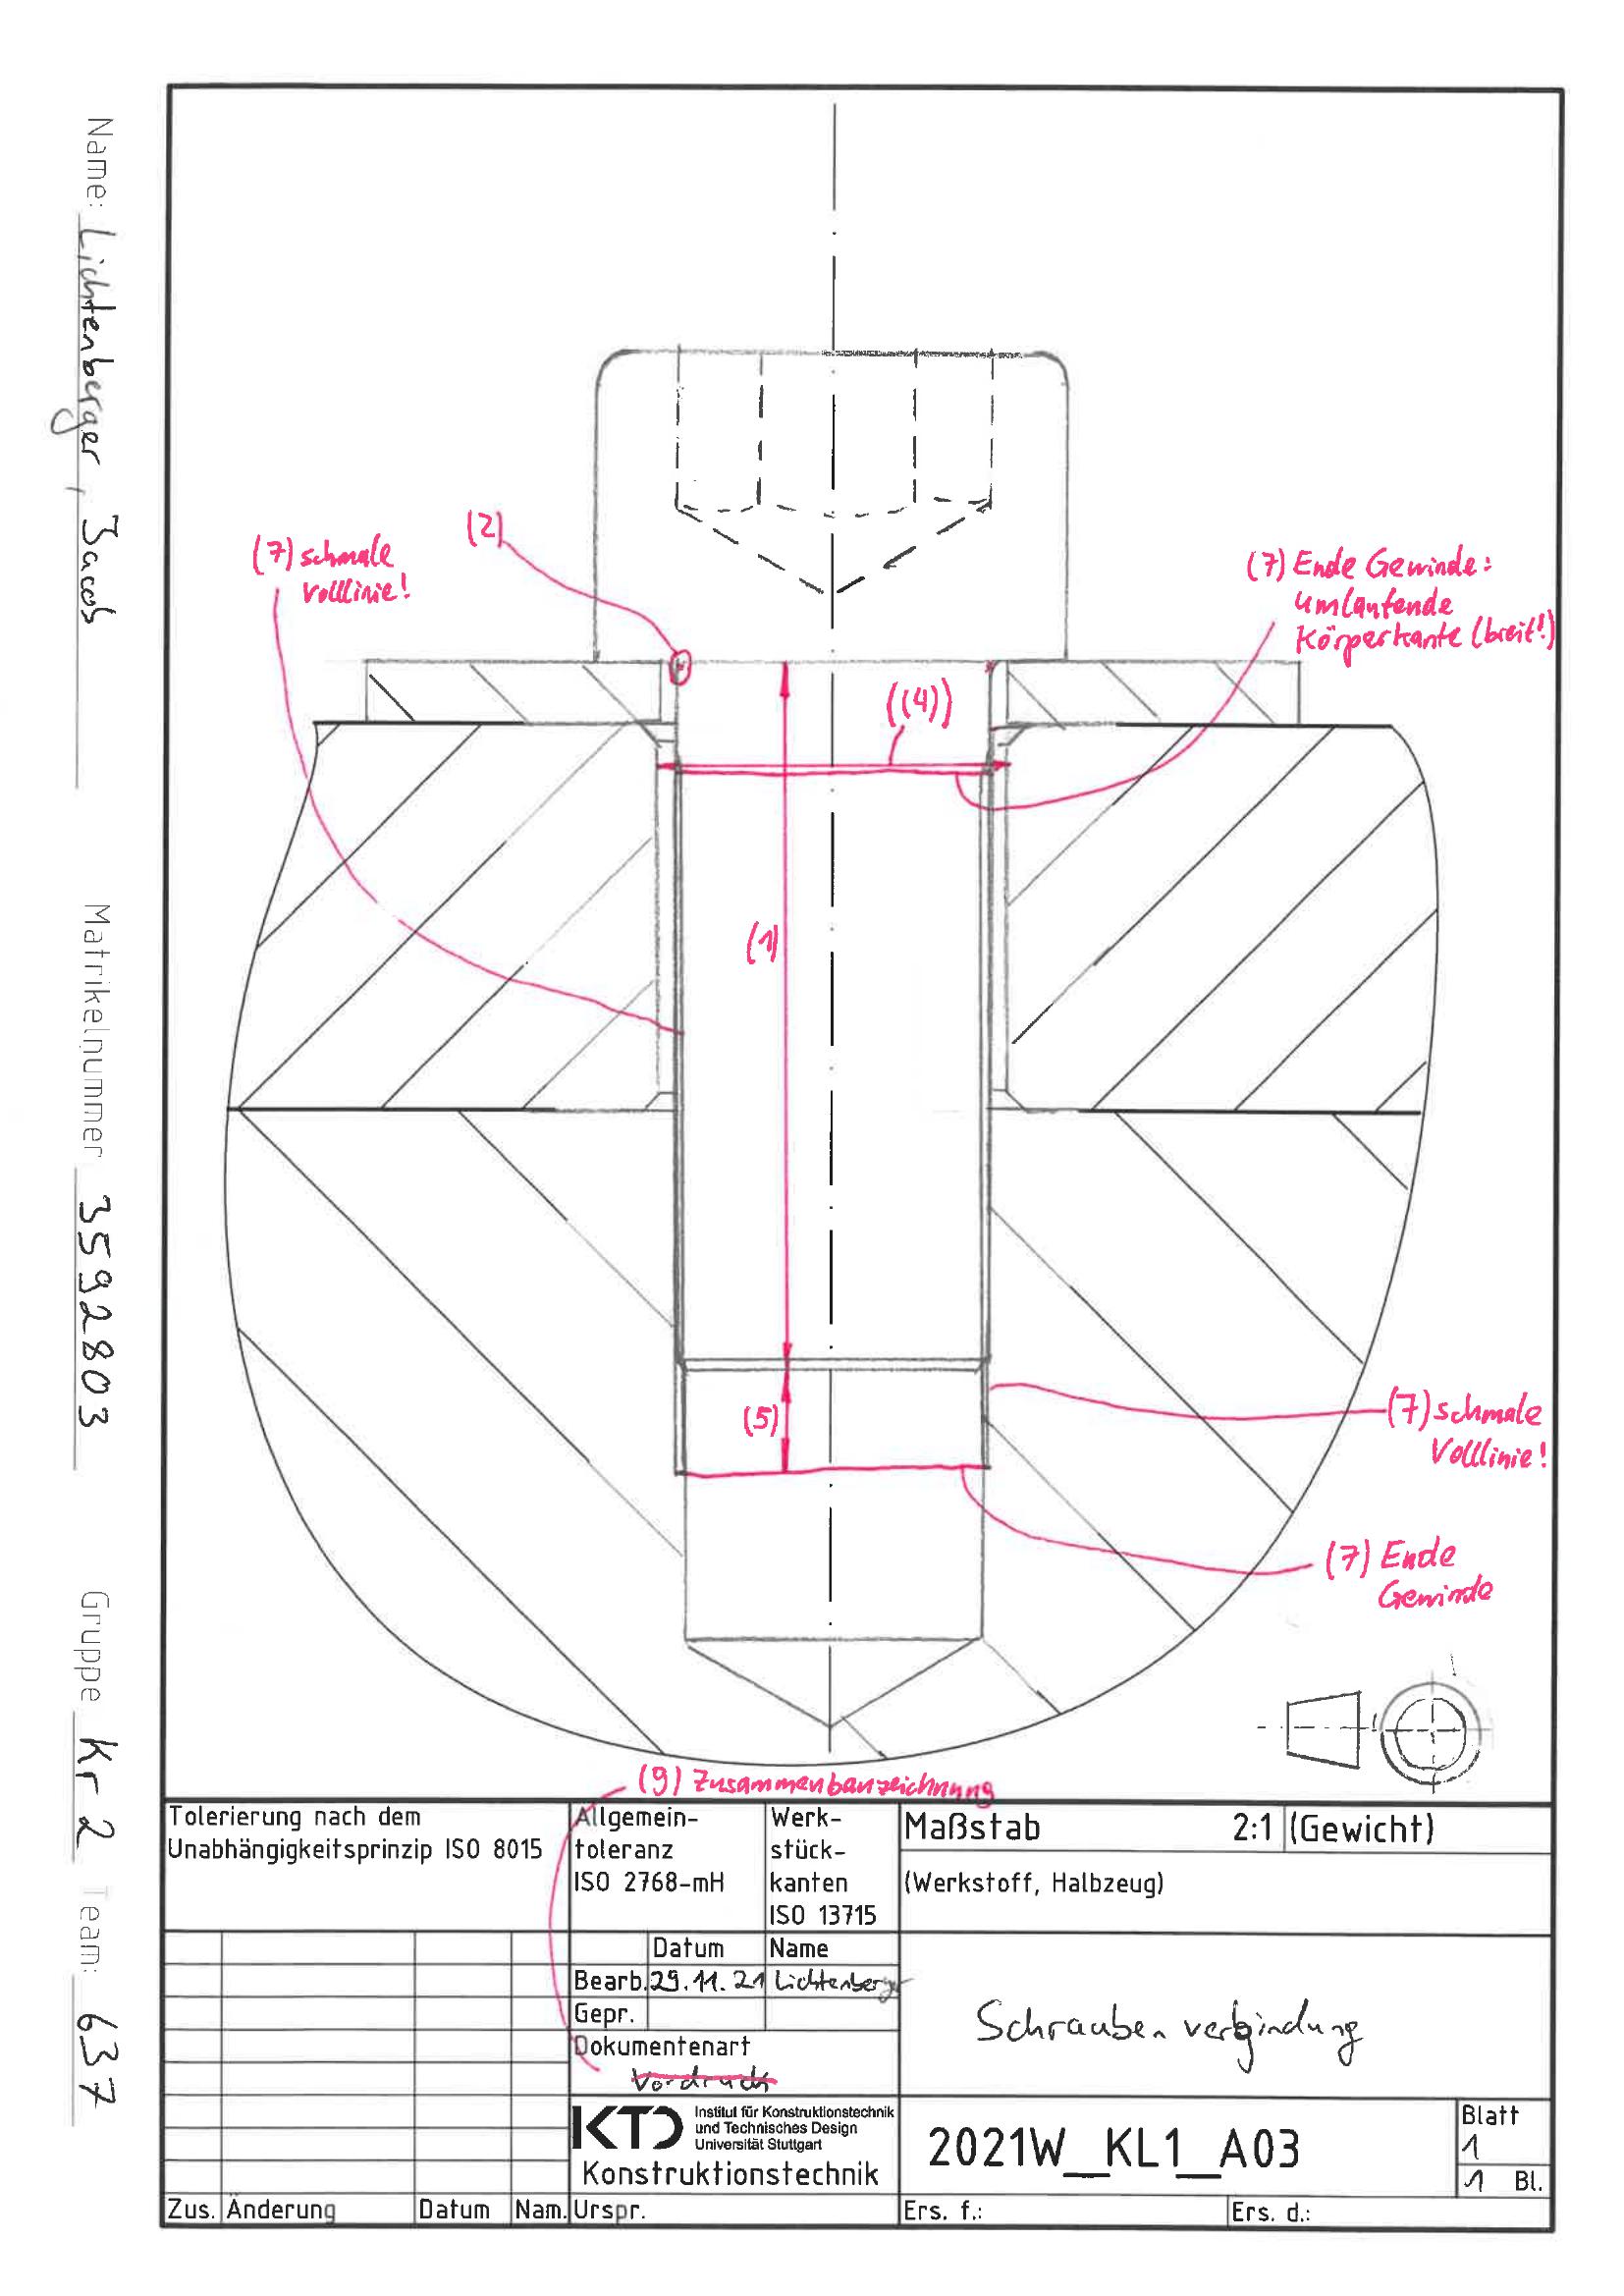 Name: Lichtenberger, Jacob
Matrikelnummer 3592803
Gruppe Kr 2 Team: 637
(7) schmale
Volllinie!
(2)
(7) Ende Gewinde:
umlaufende
Körperkante (breit!)
((4))
(1)
(5)
(7) schmale
Volllinie!
(7) Ende
Gewinde
(9) Zusammenbauzeichnung
Tolerierung nach dem
Unabhängigkeitsprinzip ISO 8015
Allgemein-
toleranz
ISO 2768-mH
Werk-
stück-
kanten
ISO 13715
Maßstab 2:1 (Gewicht)
(Werkstoff, Halbzeug)
Datum Name
Bearb. 29.11.21 Lichtenberger
Gepr.
Dokumentenart
Vordruck
Schraubenverbindung
KTD Institut für Konstruktionstechnik
und Technisches Design
Universität Stuttgart
Konstruktionstechnik
2021W_KL1_A03
Blatt
1
1 Bl.
Zus. Änderung Datum Nam. Urspr. Ers. f.: Ers. d.: